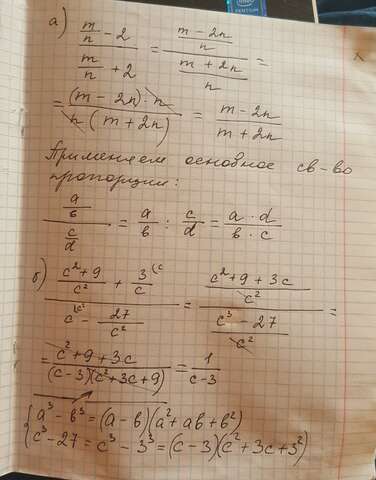 а) (m/n - 2)/(m/n + 2) = ((m - 2n)/n)/((m + 2n)/n) =
= ((m - 2n) · n)/(n (m + 2n)) = (m - 2n)/(m + 2n)
Применяем основное св-во
пропорции:
(a/b)/(c/d) = a/b : c/d = (a · d)/(b · c)
б) ((c²+9)/c² + 3/c ⁽ᶜ)/(c ⁽ᶜ² - 27/c²) = ((c²+9+3c)/c²)/((c³ - 27)/c²) =
= (c²+9+3c)/((c-3)(c²+3c+9)) = 1/(c-3)
a³ - b³ = (a-b)(a²+ab+b²)
c³ - 27 = c³ - 3³ = (c-3)(c²+3c+3²)